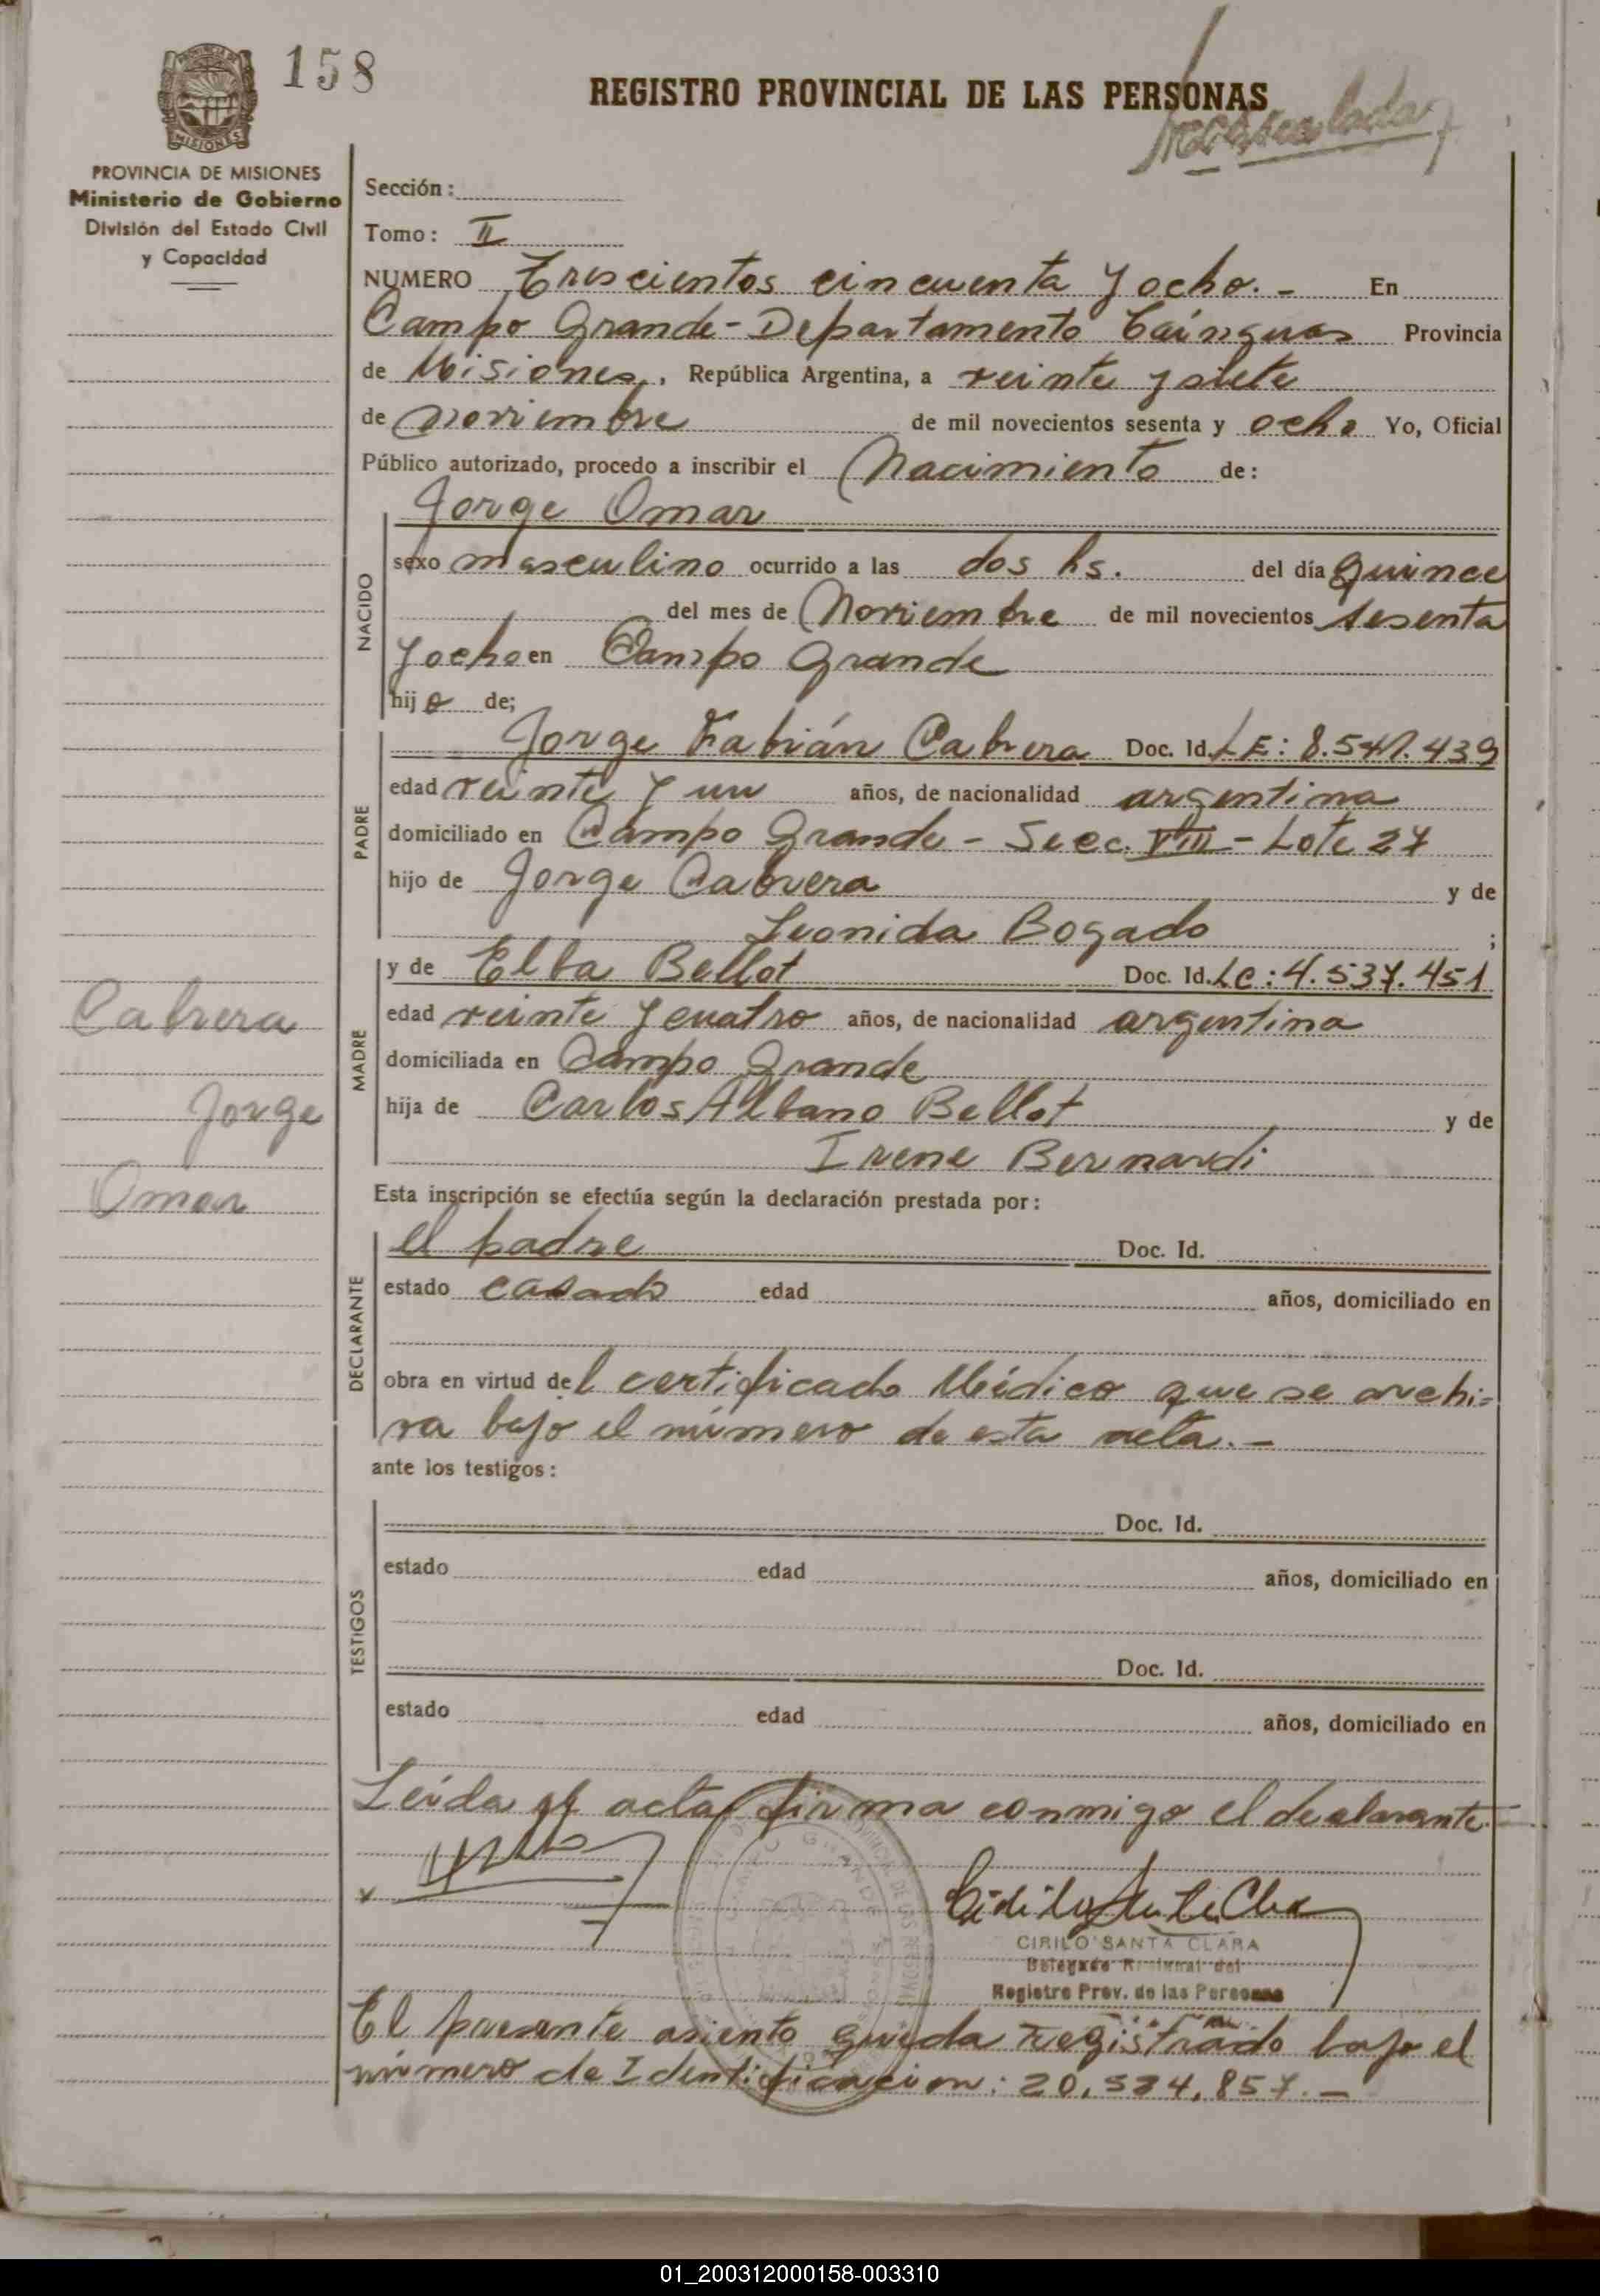 158
REGISTRO PROVINCIAL DE LAS PERSONAS
PROVINCIA DE MISIONES
MISIONES
Ministerio de Gobierno
División del Estado Civil
y Capacidad
Sección:
Tomo: II
NUMERO Trescientos cincuenta y ocho.- En
Campo Grande - Departamento Cainguas Provincia
de Misiones, República Argentina, a veinte y siete
de noviembre de mil novecientos sesenta y ocho Yo, Oficial
Público autorizado, procedo a inscribir el Nacimiento de:
Jorge Omar
NACIDO
sexo masculino ocurrido a las dos hs. del día quince
del mes de Noviembre de mil novecientos sesenta
y ocho en Campo Grande
hijo de;
PADRE
Jorge Fabián Cabrera Doc. Id. LE: 8.541.439
edad veinte y un años, de nacionalidad argentina
domiciliado en Campo Grande - Secc. VIII - Lote 27
hijo de Jorge Cabrera y de
Leonida Bogado ;
MADRE
y de Elba Bellot Doc. Id. LC: 4.537.451
edad veinte y cuatro años, de nacionalidad argentina
domiciliada en Campo Grande
hija de Carlos Albano Bellot y de
Irene Bernardi
Cabrera
Jorge
Omar
Esta inscripción se efectúa según la declaración prestada por:
DECLARANTE
el padre Doc. Id.
estado casado edad años, domiciliado en
obra en virtud del certificado Médico que se archi-
va bajo el número de esta acta.-
ante los testigos:
TESTIGOS
Doc. Id.
estado edad años, domiciliado en
Doc. Id.
estado edad años, domiciliado en
Leida el acta, firma conmigo el declarante.-
CIRILO SANTA CLARA
Delegado del
Registro Prov. de las Personas
El presente asiento queda registrado bajo el
número de Identificacion: 20.524.857.-
01_200312000158-003310